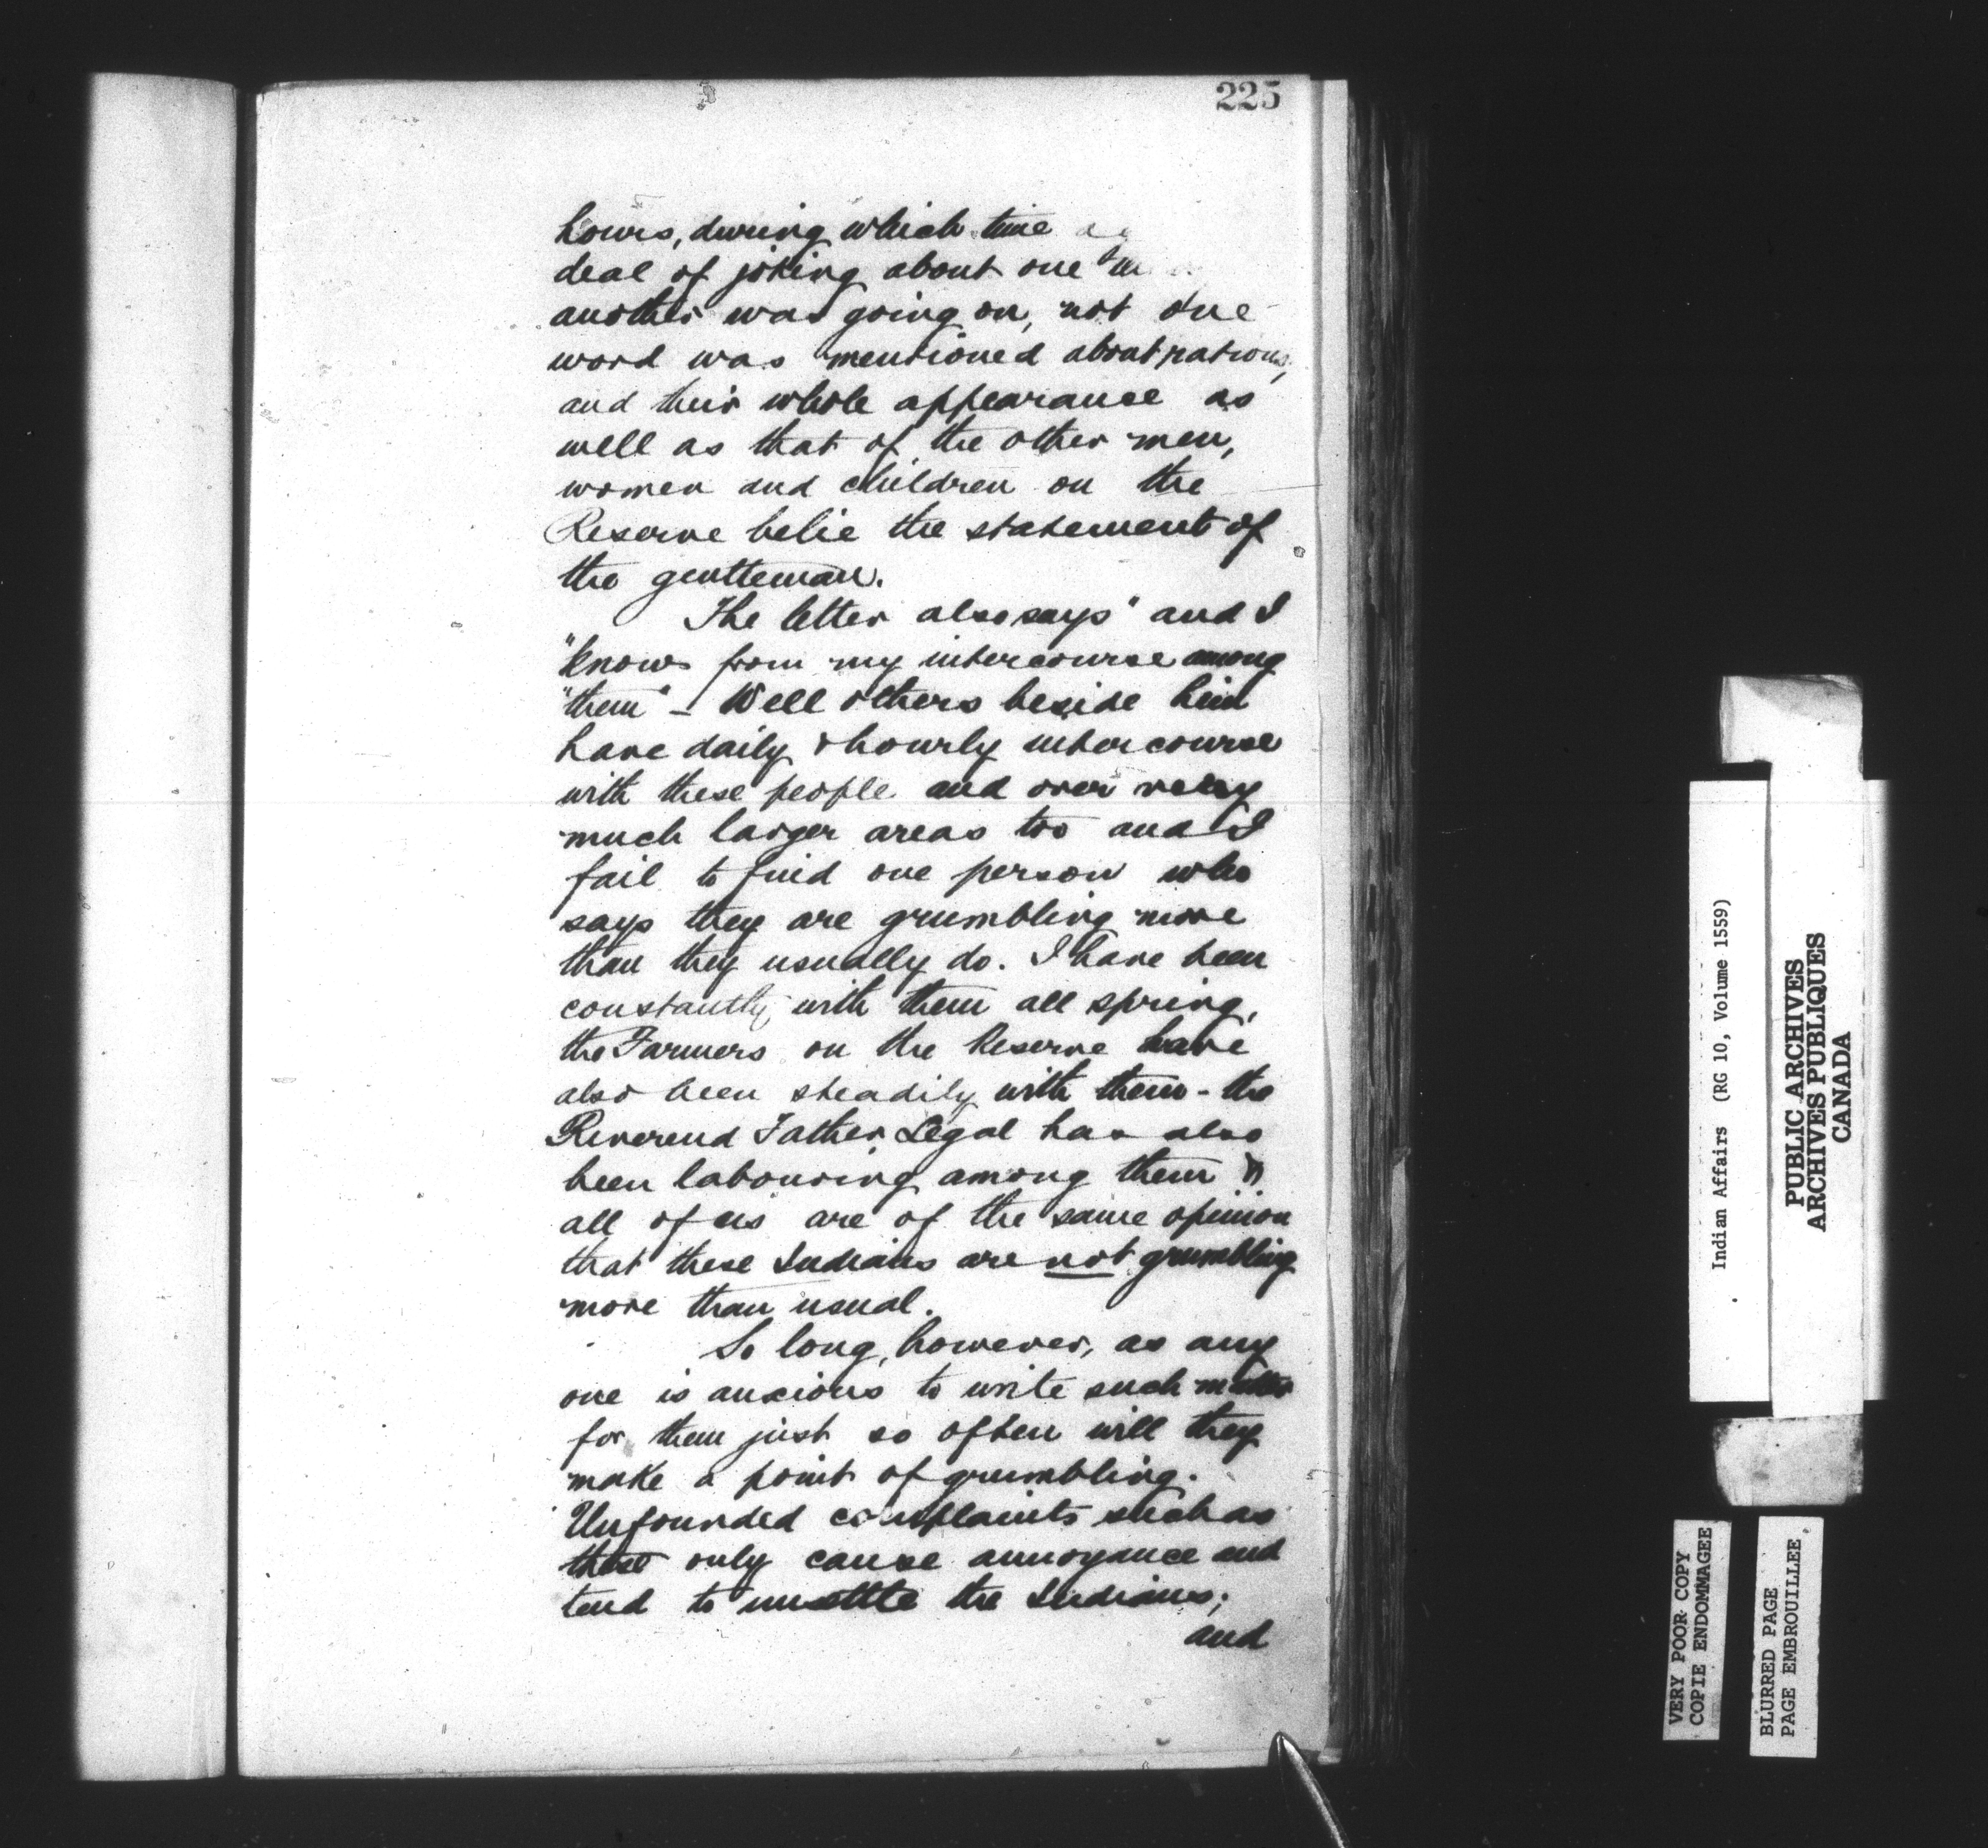 225
hours, during which time a
deal of joking about one
another was going on, not one
word was mentioned about rations,
and their whole appearance as
well as that of the other men,
women and children on the
Reserve belie the statement of
the gentleman.
The letter also says "and I
"know from my intercourse among
"them" - Well others beside him
have daily & hourly intercourse
with these people and over very
much larger areas too and I
fail to find one person who
says they are grumbling more
than they usually do. I have been
constantly with them all spring,
the Farmers on the Reserve have
also been steadily with them - the
Reverend Father Legal has also
been labouring among them &
all of us are of the same opinion
that these Indians are not grumbling
more than usual.
So long, however, as any
one is anxious to write such matter
for them just so often will they
make a point of grumbling.
Unfounded complaints such as
these only cause annoyance and
tend to unsettle the Indians;
and
Indian Affairs (RG 10, Volume 1559)
PUBLIC ARCHIVES
ARCHIVES PUBLIQUES
CANADA
VERY POOR COPY
COPIE ENDOMMAGEE
BLURRED PAGE
PAGE EMBROUILLEE